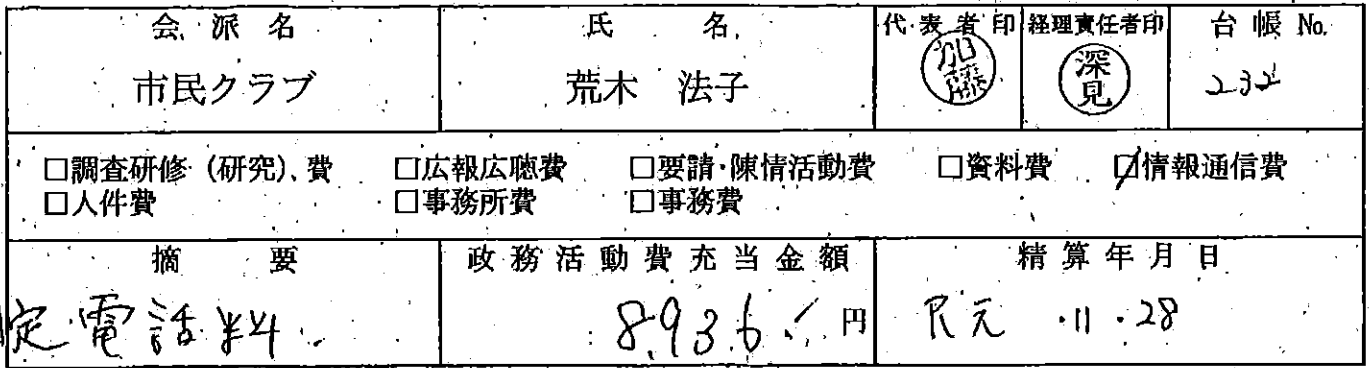 会派名 氏名 代表者印 経理責任者印 台帳 No.
市民クラブ 荒木 法子 加藤 深見 232
□調査研修(研究)費 □広報広聴費 □要請・陳情活動費 □資料費 ☑情報通信費
□人件費 □事務所費 □事務費
摘要 政務活動費充当金額 精算年月日
定電話料 8,936 円 R元・11・28